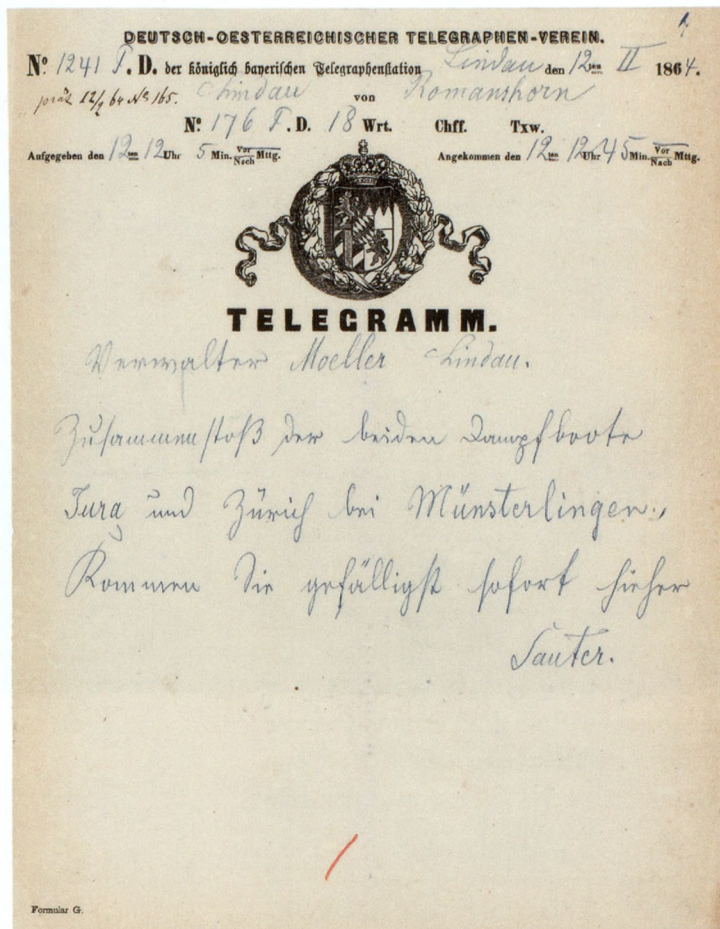 DEUTSCH-OESTERREICHISCHER TELEGRAPHEN-VEREIN.
No. 1241 T. D. der königlich bayerischen Telegraphenstation Lindau den 12ten II 1864.
präs 12/2 64 No 165. Lindau von Romanshorn
No. 176 T. D. 18 Wrt. Chff. Txw.
Aufgegeben den 12ten 12 Uhr 5 Min. Vor/Nach Mttg. Angekommen den 12ten 12 Uhr 45 Min. Vor/Nach Mttg.
TELEGRAMM.
Verwalter Moeller Lindau.
Zusammenstoß der beiden Dampfboote
Jura und Zürich bei Münsterlingen.
Kommen Sie gefälligst sofort hieher
Sauter.
Formular G.